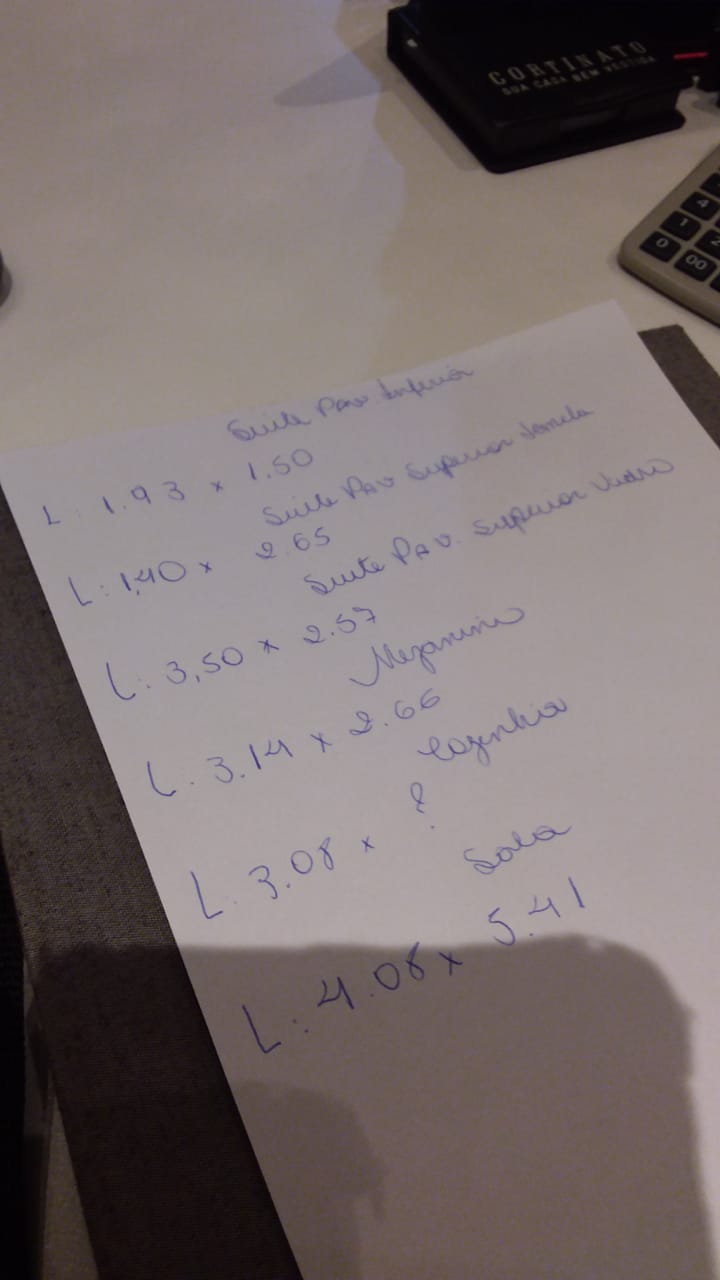 CORTINATO
SUA CASA BEM VESTIDA
4
1
2
0
00
Suite Pav Inferior
L: 1.93 x 1.50
Suite Pav Superior Janela
L: 1,40 x 2.65
Suite PAV. Superior Vidro
L: 3,50 x 2.57
Mezanino
L: 3.14 x 2.66
Cozinha
L: 3.08 x ?
Sala
L: 4.08 x 5.41